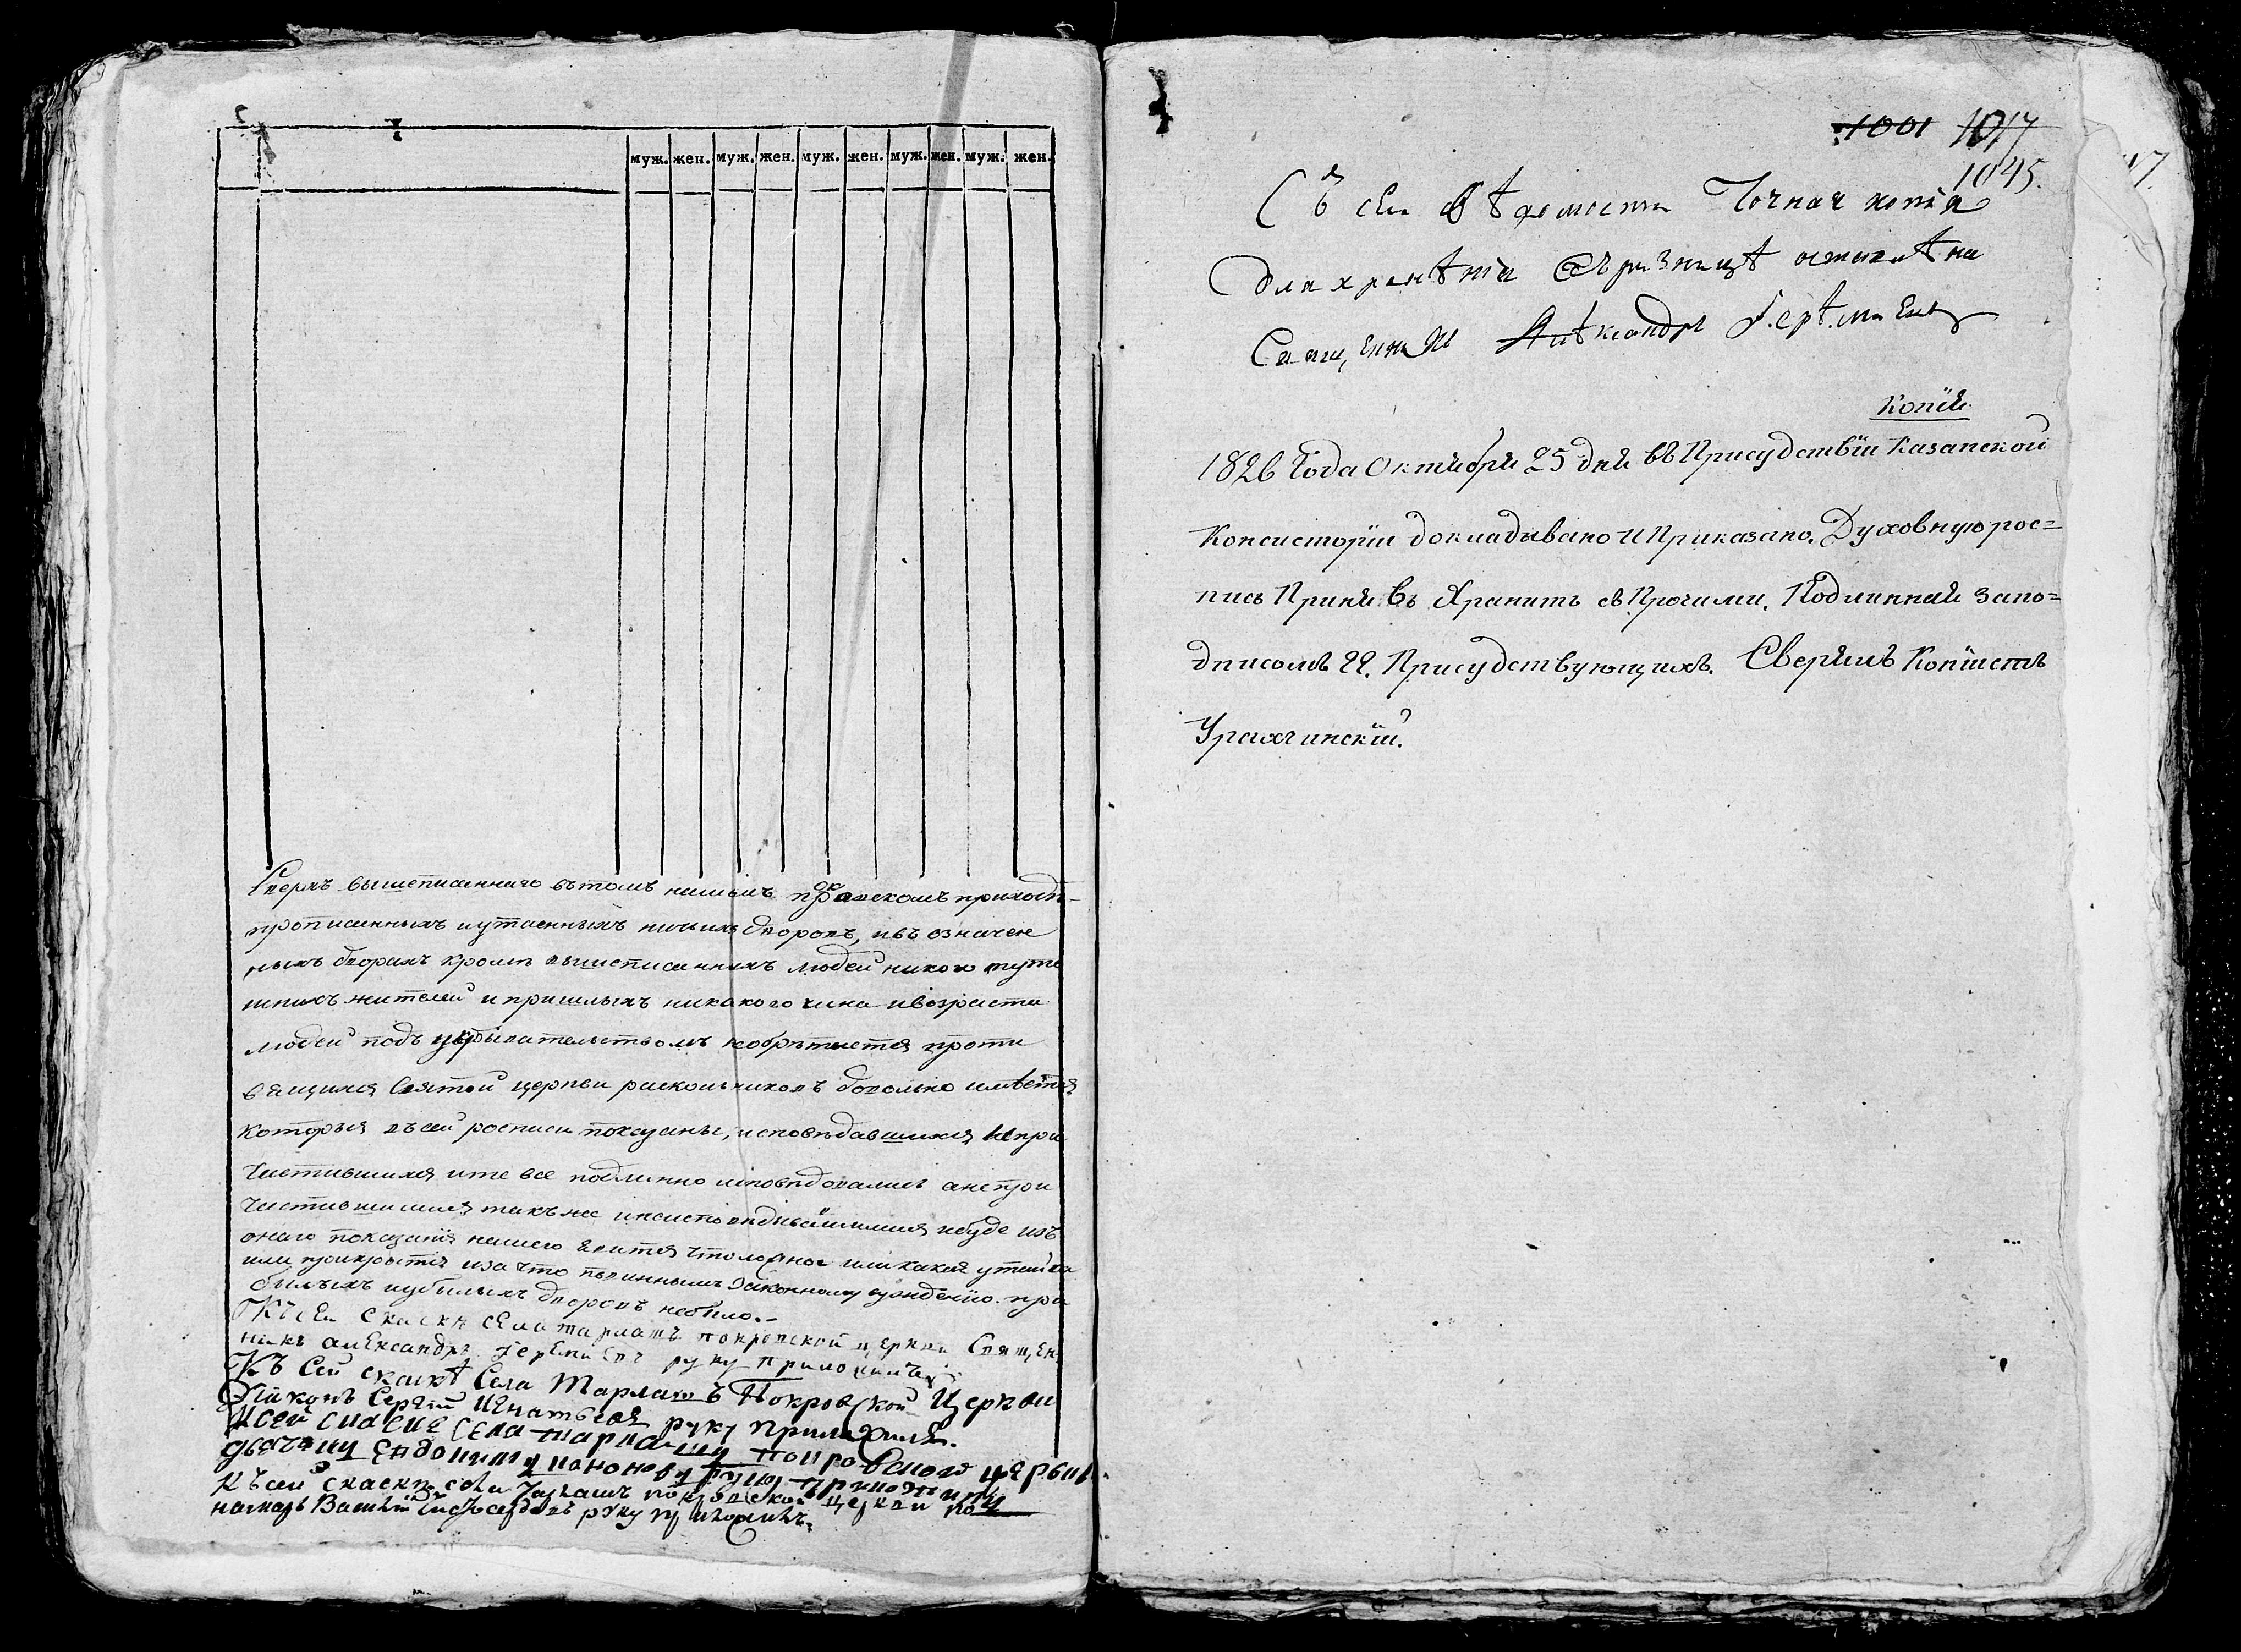 муж. жен. муж. жен. муж. жен. муж. жен. муж. жен.
Сверхъ вышеписаннаго въ томъ нашемъ приходѣ
прописанныхъ и утаенныхъ ничьихъ дворовъ, и въ означен
ныхъ дворахъ кромѣ вышеписанныхъ людей никого туто
шнихъ жителей и пришлыхъ никакого чина и возраста
людей подъ укрывательствомъ необрѣтается проти
вящихся Святой церкви раскольниковъ довольно имѣется
которыя въ сей росписи показаны, исповѣдавшихся и при
частившихся и те все подлинно исповѣдовались а непри
частившимися такъже и неисповѣдывавшимися и буде изъ
онаго показанія нашего явится что ложное или какая утайка
или прикрытіе и за что повиннымъ законному суждению. при
былыхъ и убылыхъ дворовъ небыло.
Къ сеи скаски села тарлашъ покровской церкви Священ
никъ александръ Іеремиевъ руку приложилъ
Къ Сей скаскѣ Села Тарлашъ Покровской Церкви
Діяконъ Сергій Игнатьевъ руку приложилъ.
Ксей скаске села тарлашъ покровской церкви
руку приложилъ
Къ сей скаскѣ села Тарлашъ покровской церкви по
намарь Василій руку приложилъ.
1001 1017
1045.
Съ сеи вѣдомости Точная копія
для хранѣнія въ ризницѣ оставлѣна
Священникъ Алѣксандръ Іерѣмиевъ
Копія
1826 Года Октября 25 дня въ Присудствіи Казанской
Консисторіи докладывано и Приказано. Духовную рос=
пись Принявъ Хранить съ Прочими. Подлинная запо=
дписомъ гг. Присудствующихъ. Сверялъ Копіистъ
Урахчинскій.